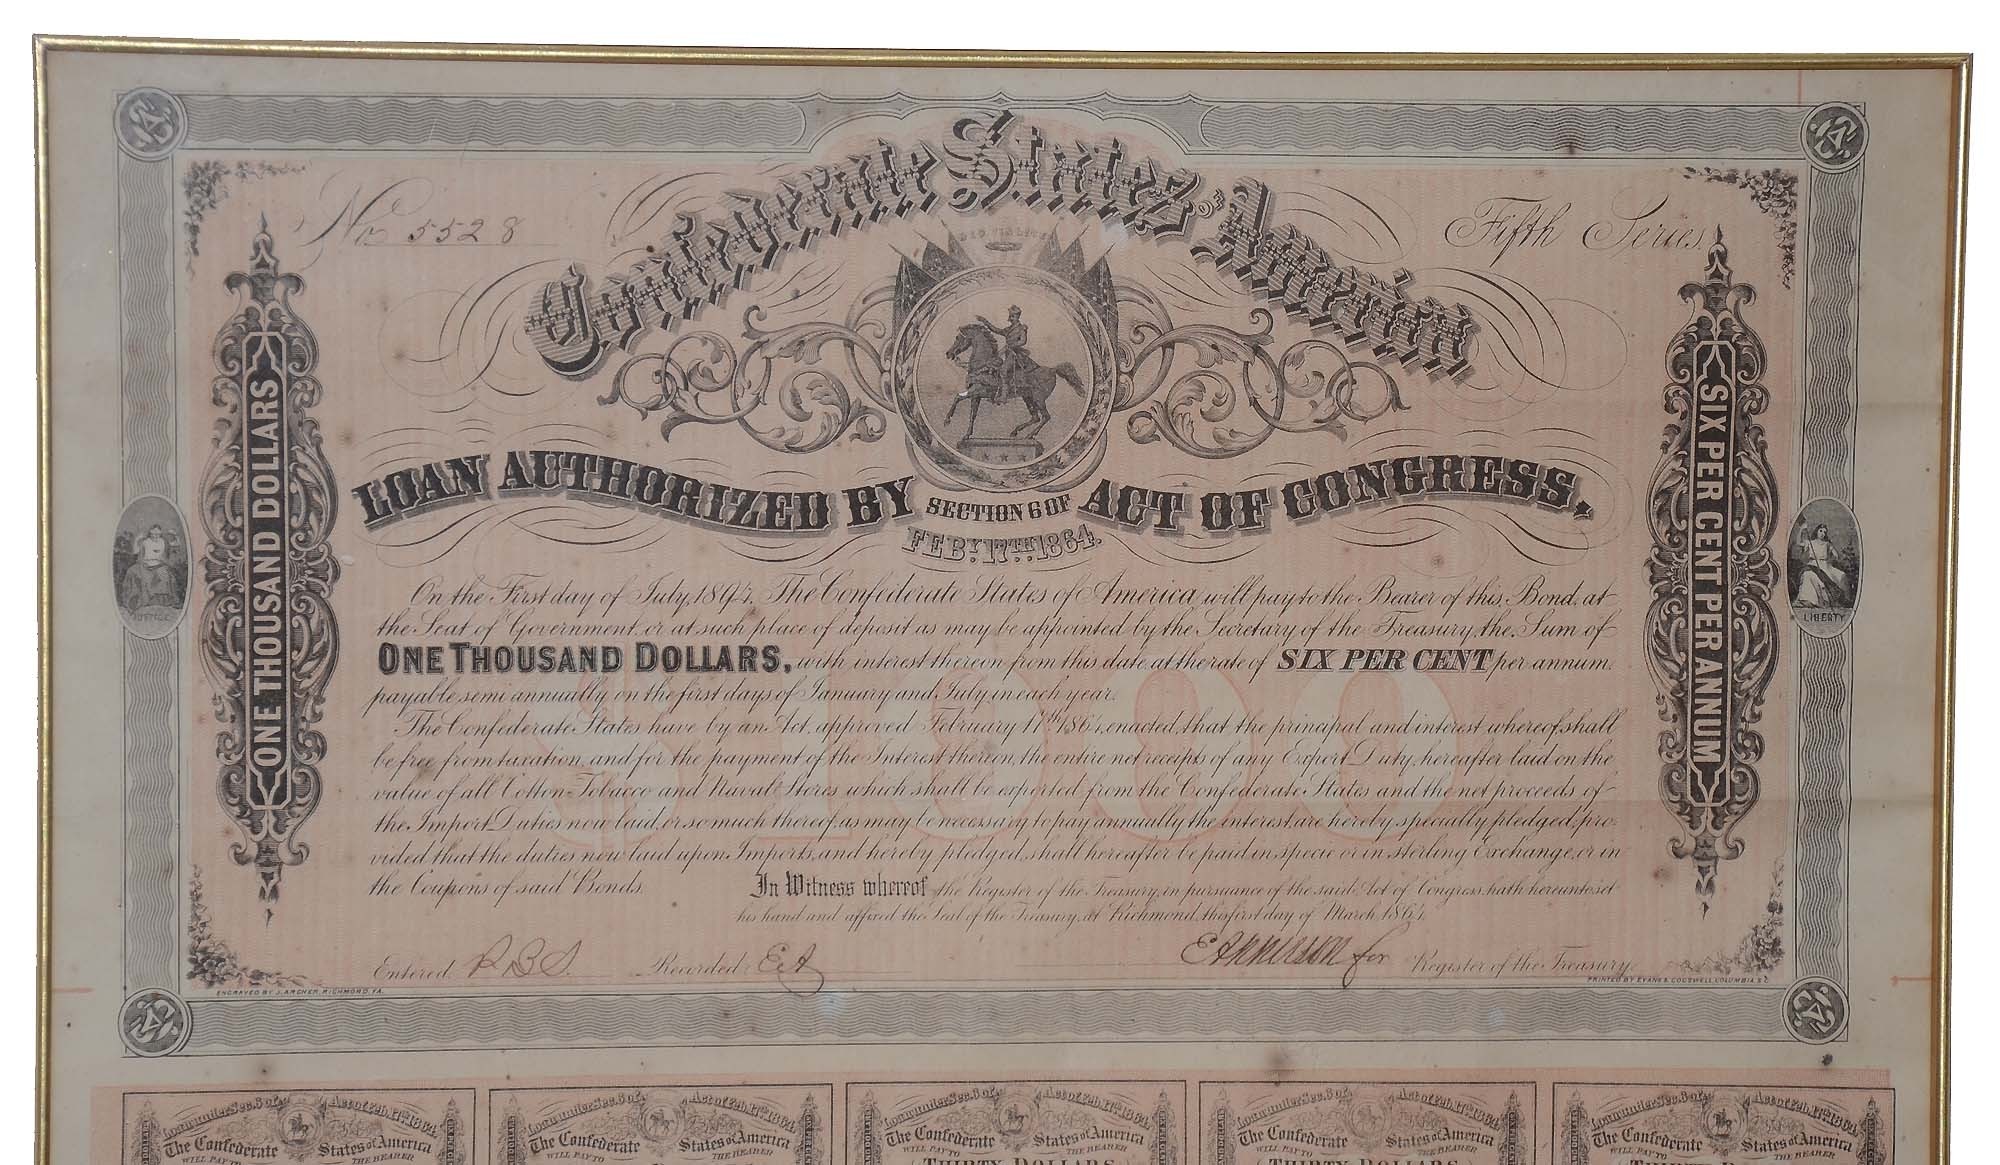 Confederate States OF America
No 5528
Fifth Series.
DEO VINDICE
LOAN AUTHORIZED BY SECTION 6 OF ACT OF CONGRESS,
FEBY. 17TH. 1864.
ONE THOUSAND DOLLARS
SIX PER CENT PER ANNUM
JUSTICE
LIBERTY
On the First day of July, 1894, The Confederate States of America will pay to the Bearer of this Bond, at
the Seat of Government, or at such place of deposit as may be appointed by the Secretary of the Treasury, the Sum of
ONE THOUSAND DOLLARS, with interest thereon from this date at the rate of SIX PER CENT per annum
payable semi annually on the first days of January and July, in each year.
The Confederate States have by an Act, approved February 17th 1864, enacted, that the principal and interest whereof shall
be free from taxation, and for the payment of the Interest thereon, the entire net receipts of any Export Duty, hereafter laid on the
value of all Cotton Tobacco and Naval Stores which shall be exported from the Confederate States and the net proceeds of
the Import Duties now laid, or so much thereof, as may be necessary to pay annually the interest, are hereby specially pledged, pro-
vided that the duties now laid upon Imports, and hereby pledged, shall hereafter be paid in specie or in sterling Exchange, or in
the Coupons of said Bonds.
$1000
In Witness whereof the Register of the Treasury, in pursuance of the said Act of Congress, hath hereunto set
his hand and affixed the Seal of the Treasury, at Richmond, this first day of March, 1864.
Entered. RBS. Recorded: EA for Register of the Treasury.
ENGRAVED BY J. ARCHER, RICHMOND, VA.
PRINTED BY EVANS & COGSWELL, COLUMBIA S C
Loan under Sec. 6 of Act of Feb. 17th 1864.
The Confederate States of America
WILL PAY TO THE BEARER
Loan under Sec. 6 of Act of Feb. 17th 1864.
The Confederate States of America
WILL PAY TO THE BEARER
Loan under Sec. 6 of Act of Feb. 17th 1864.
The Confederate States of America
WILL PAY TO THE BEARER
THIRTY DOLLARS
Loan under Sec. 6 of Act of Feb. 17th 1864.
The Confederate States of America
WILL PAY TO THE BEARER
THIRTY DOLLARS
Loan under Sec. 6 of Act of Feb. 17th 1864.
The Confederate States of America
WILL PAY TO THE BEARER
THIRTY